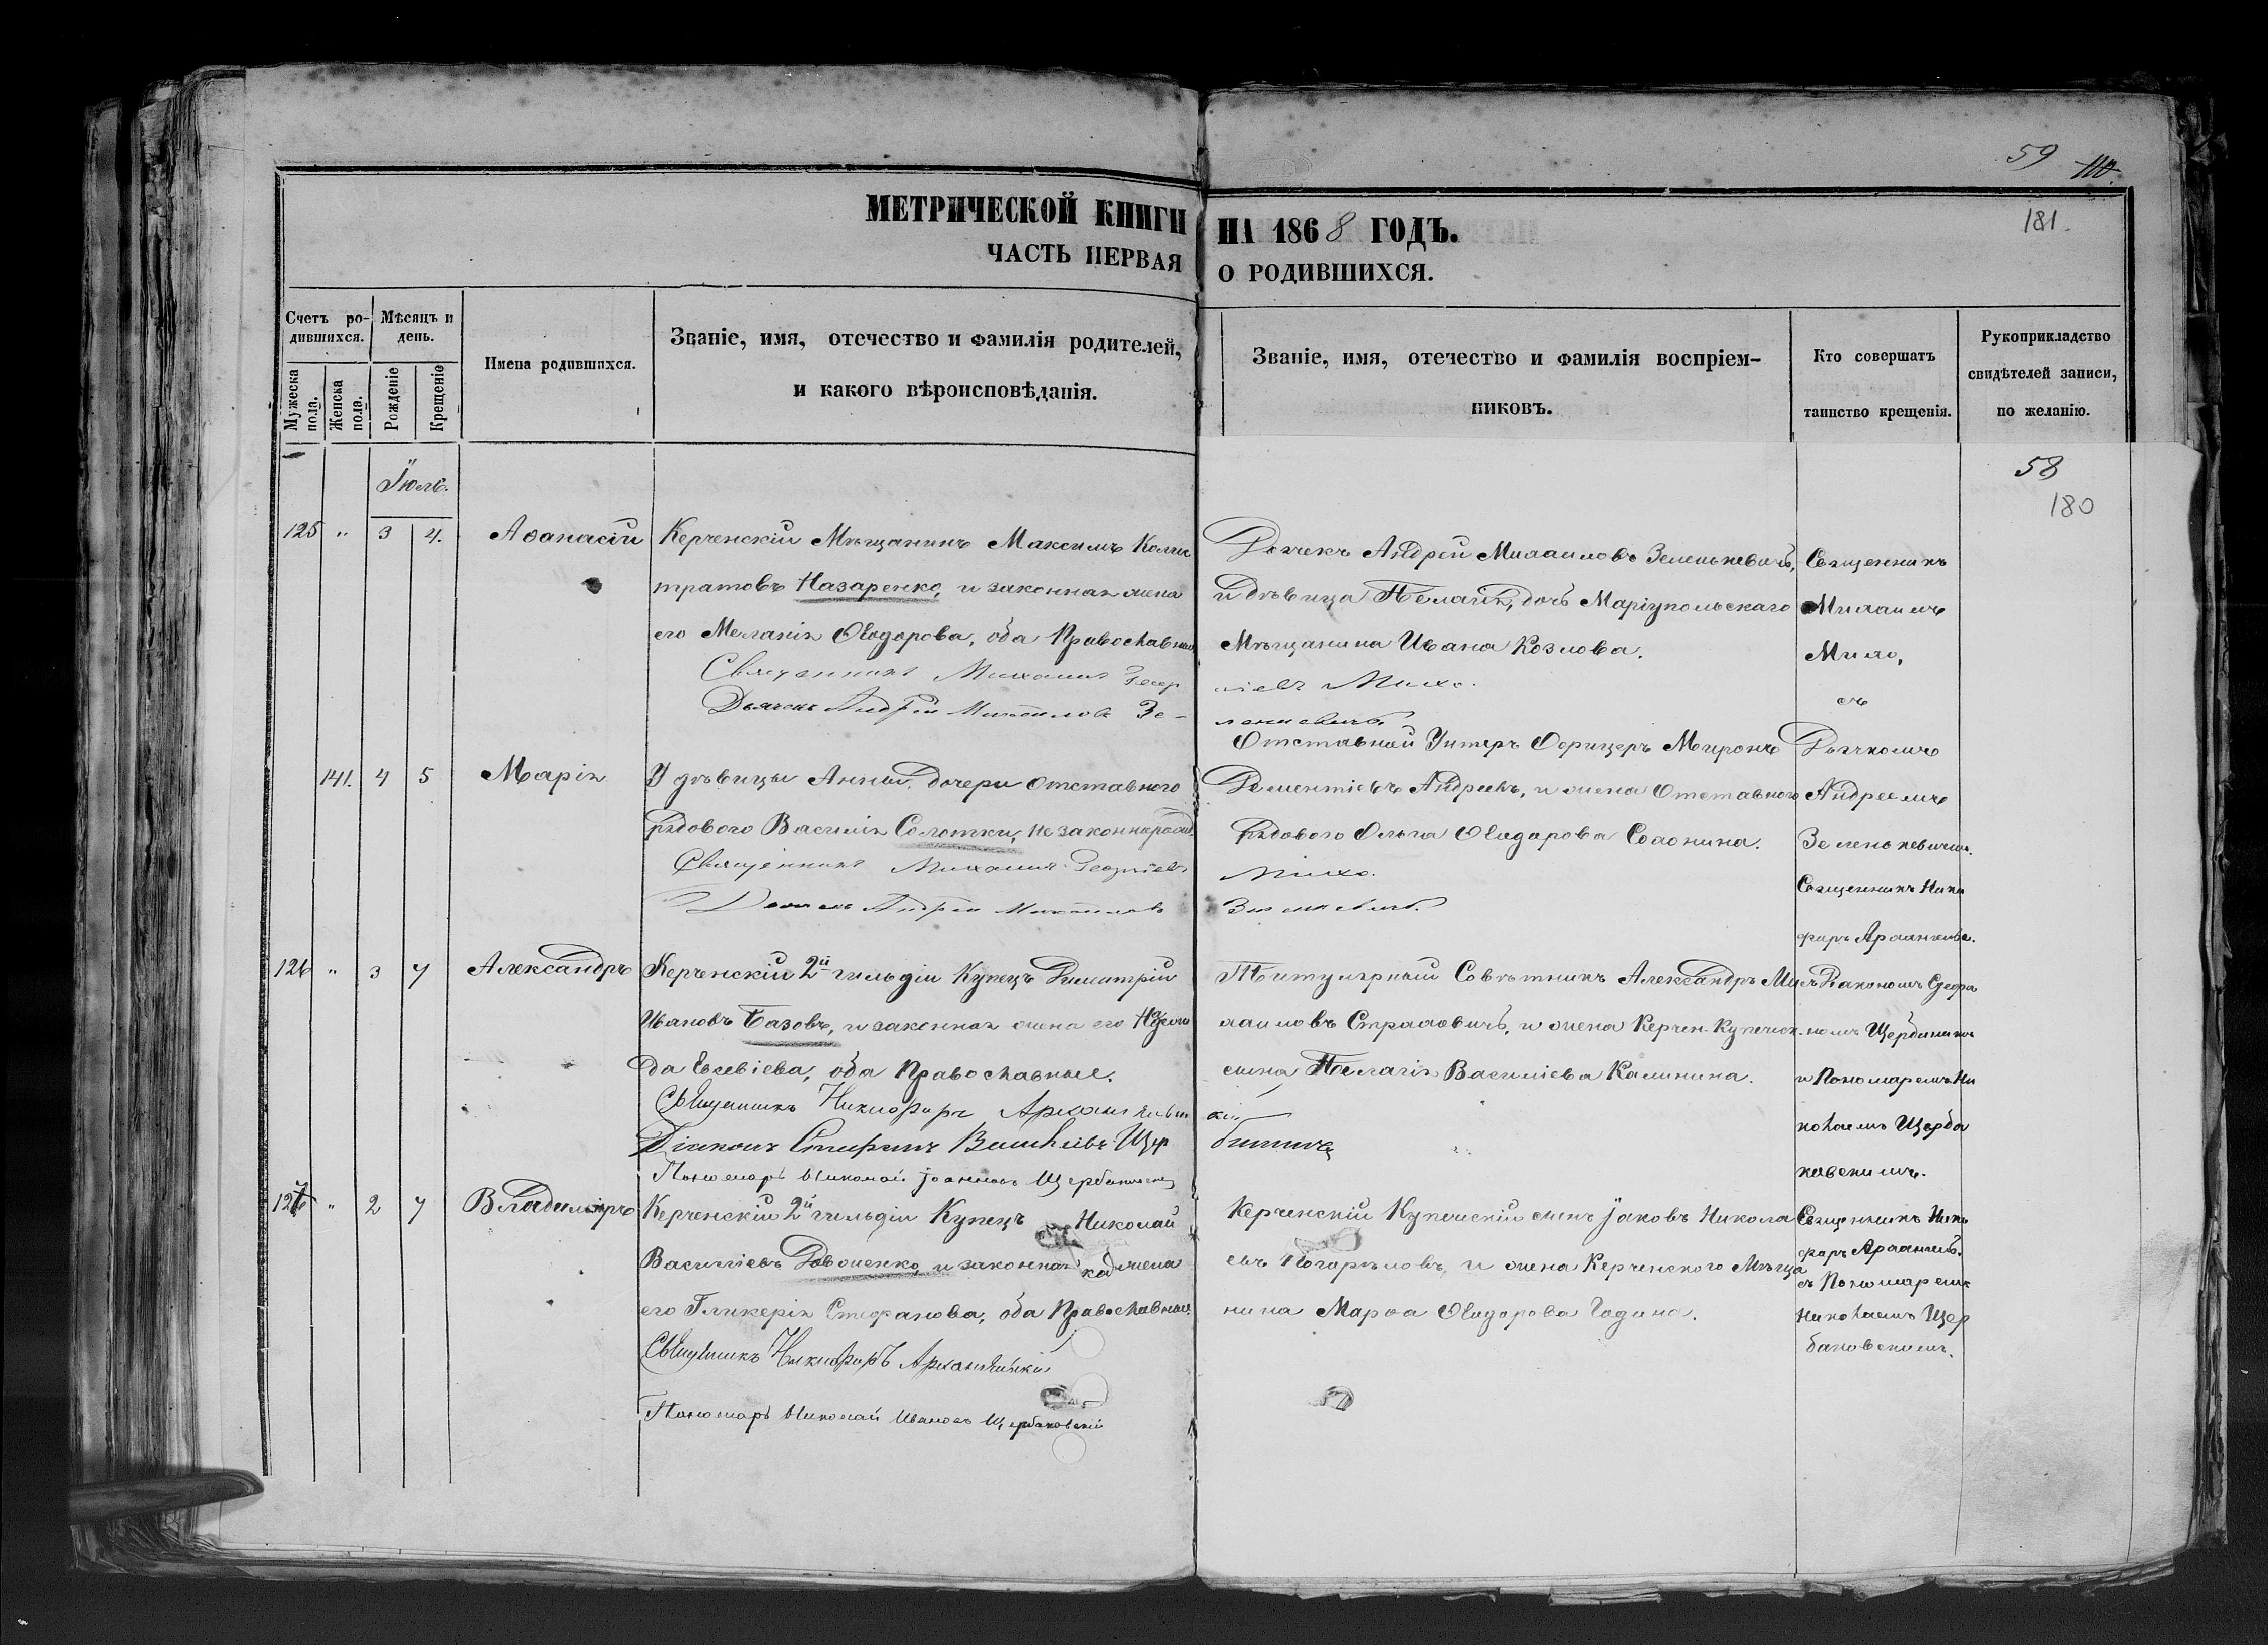 59
110
МЕТРИЧЕСКОЙ КНИГИ НА 1868 ГОДЪ.
181.
ЧАСТЬ ПЕРВАЯ О РОДИВШИХСЯ.
Счетъ ро-
дившихся.
Мужеска пола.
Женска пола.
Мѣсяцъ и
день.
Рожденіе
Крещеніе
Имена родившихся.
Званіе, имя, отечество и фамилія родителей,
и какого вѣроисповѣданія.
Званіе, имя, отечество и фамилія воспріем-
никовъ.
Кто совершатъ
таинство крещенія.
Рукоприкладство
свидѣтелей записи,
по желанію.
58
180
Іюль.
125 " 3 4. Аѳанасій
Керченскій Мѣщанинъ Максимъ Калис
тратовъ Назаренко, и законная жена
его Меланія Ѳеодорова, оба Православные
Священникъ Михаилъ Геор
Дьячекъ Андрей Михайловъ Зе-
Дьячекъ Андрей Михаиловъ Зеленькевичъ,
и дѣвица Пелагія, дочь Маріупольскаго
Мѣщанина Ивана Козлова.
гіевъ Михо.
ленкевичъ
Священникъ
Михаилъ
Михо,
съ
Дьячкомъ
Андреемъ
Зеленькевичем.
141. 4 5 Марія
У дѣвицы Анны, дочери отставного
рядового Василія Солотки, незаконнорожд.
Священникъ Михаилъ Георгіевъ
Дьячекъ Андрей Михайловъ
Отставный Унтеръ Офицеръ Миронъ
Дементіевъ Андреевъ, и жена Отставного
Рядового Ольга Ѳеодорова Солонина.
Михо.
Зеленкевичъ.
126 " 3 7 Александръ
Керченскій 2й гильдіи Купецъ Димитрій
Ивановъ Базовъ, и законная жена его Надеж
да Евсевіева, оба Православные.
Священникъ Никифоръ Архангельс
Діаконъ Стефанъ Васильевъ Щер
Пономарь Николай Іоанновъ Щербаковскій
Титулярный Совѣтникъ Александръ Ми
хаиловъ Страховичъ, и жена Керчен. Купеческ.
сына Пелагія Василіева Калинина.
кій
Священникъ Ники
форъ Архангельс.
съ Діакономъ Стефа
номъ Щербинимъ
и Пономаремъ Ни
колаемъ Щерба
ковскимъ.
127 " 2 7 Владиміръ
Керченскій 2й гильдіи Купецъ Николай
Василіевъ Довженко, и законная жена
его Гликерія Стефанова, оба Православные.
Священникъ Никифоръ Архангельскій
Пономарь Николай Ивановъ Щербаковскій
Керченскій Купеческій сынъ Іаковъ Никола
евъ Погорѣловъ, и жена Керченского Мѣща
нина Марѳа Ѳеодорова Година.
Священникъ Ники
форъ Архангельс.
съ Пономаремъ
Николаемъ Щер
баковскимъ.